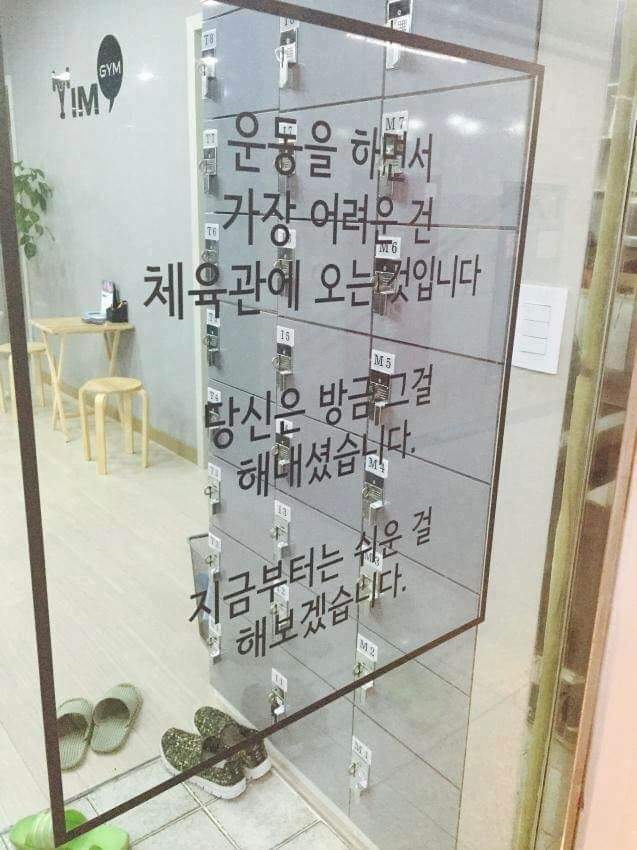 GYM
TiM
운동을 하면서
가장 어려운 건
체육관에 오는 것입니다
당신은 방금 그걸
해내셨습니다.
지금부터는 쉬운 걸
해보겠습니다.
T8
M7
T6
M6
T5
M5
M4
M2
M1